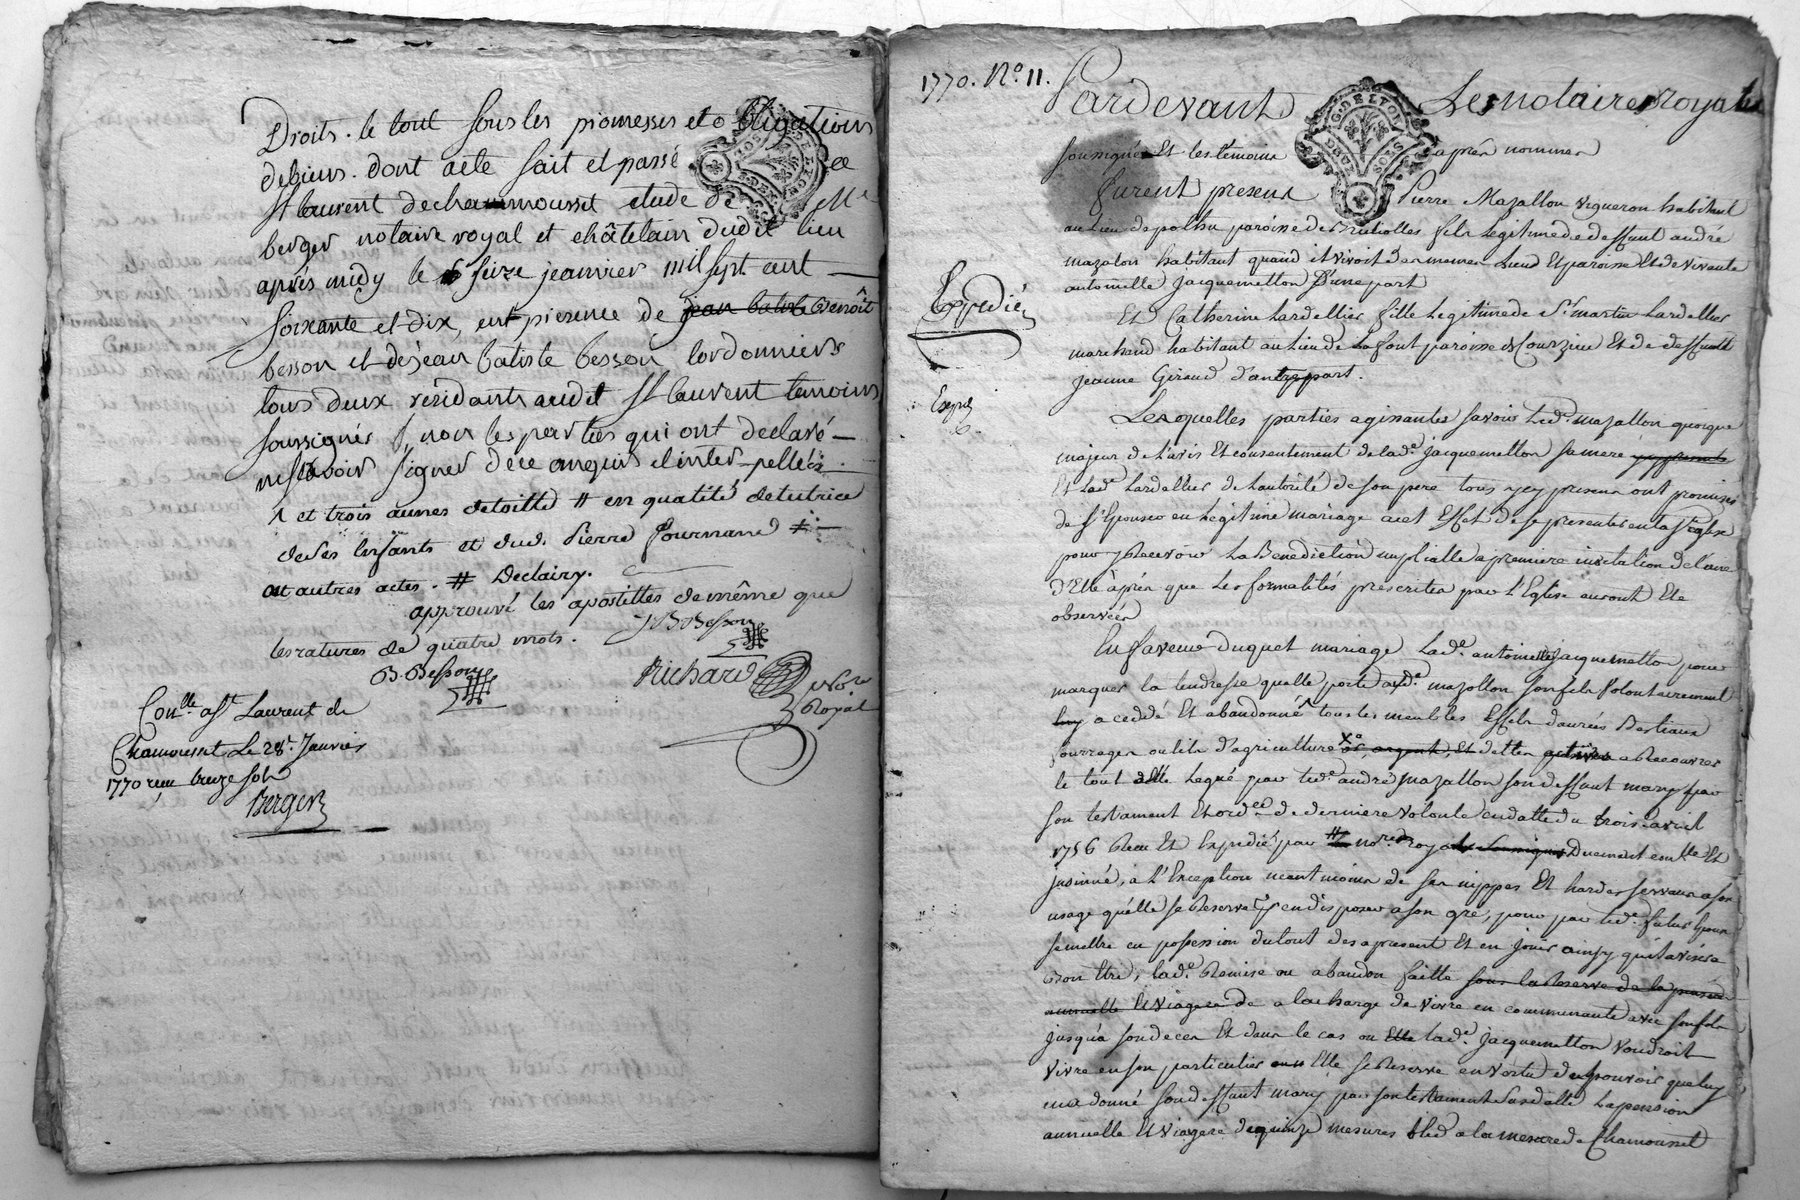 Droits. le tout sous les promesses et obligations
de biens. dont acte fait et passé
St laurent de chamousset etude de Me
berger notaire royal et châtelain dudit lieu
après midy le seize jeanvier mil sept cent
soixante et dix, en presence de jean batiste Benoît
besson et de jean batiste besson cordonniers
tous deux residants audit St laurent temoins
soussignés, non les parties qui ont declaré
ne scavoir signer de ce enquis et inter-pellées.
et trois aunes de toille # en qualité de tutrice
de ses Enfants et dud. Pierre fournand #
ou autres actes. # Declairy.
approuvé les apostilles de même que
les ratures de quatre mots. J B Besson
B. Besson Richard No.re
Royal
Con.lle a St Laurent de
Chamousset Le 28e. Janvier
1770 reçu treze sols
Berger
1770. No. 11. Pardevant Les notaires royal
soussignés Et les temoins apres nommes
furent presens Pierre Mazallon vigneron habitant
au Lieu de paroisse de fils Legitime de deffunt andré
mazalon habitant quand il vivoit Lieu Et paroisse Et de vivante
antoinette Jacquemetton D'une part
Expedié
Et Catherine Lardellier fille Legitime de Sr. martin Lardellier
marchand habitant au Lieu de La font paroisse de Courzieu Et de deffunte
jeanne Giraud d'autre part.
Exped.
Lesquelles parties agissantes savoir Led. mazallon quoique
majeur de L'avis Et consentement de lad.e jacquemetton sa mere
Et Lad.e Lardellier de Lautorité de son pere tous icy presens ont promises
de s'Epouser en Legitime mariage a cet Effet de se presenter en la Ste. Eglise
pour y Recevoir La Benediction nuptialle a premiere invitation de l'une
d'Elle après que Les formalités prescrites par L'Eglise auront Ete
observées
En faveur duquel mariage Lad.e antoinette jacquemetton pour
marquer la tendresse quelle porte aud.e mazallon son fils Volontairement
luy a ceddé Et abandonné tous les meubles Effets danrées Bestiaux
ourrages outils d'agriculture or, argent, Et dettes actives a Recouvrer
le tout Legué par led.e andré mazallon son deffunt mary par
son testament Et ord.ce de derniere volonté en datte du trois avril
1756 Recu Et Expedié par nore royal soussigné Duement con.lle Et
insinué, a l'Exception neantmoins de ses nippes Et hardes servans a son
usage qu'elle se Reserve en disposer a son gré, pour par led.e futur Epoux
se mettre en possession du tout des apresent Et en jouir ainsy qu'il avisera
bon etre, lad.e Remise ou abandon faitte sous la Reserve de la pension
annuelle Et viagere de a la charge de vivre en communauté avec son fils
jusqu'a son deces Et dans le cas ou Elle lad.e jacquemetton voudroit
vivre en son particulier Elle se Reserve en vertu du pouvoir que luy
en a donné son deffunt mary par son testament susdatté La pension
annuelle Et viagere de quinze mesures bled a la mesure de Chamousset